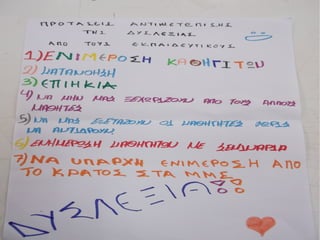 ΠΡΟΤΑΣΕΙΣ ΑΝΤΙΜΕΤΩΠΙΣΗΣ
ΤΗΣ ΔΥΣΛΕΞΙΑΣ
ΑΠΟ ΤΟΥΣ ΕΚΠΑΙΔΕΥΤΙΚΟΥΣ
1) ΕΝΙΜΕΡΟΣΗ ΚΑΘΗΓΙΤΩΝ
2) ΚΑΤΑΝΟΗΣΗ
3) ΕΠΙΗΚΙΑ
4) ΝΑ ΜΗΝ ΜΑΣ ΞΕΧΩΡΙΖΟΥΝ ΑΠΟ ΤΟΥΣ ΑΛΛΟΥΣ
ΜΑΘΗΤΕΣ
5) ΝΑ ΜΑΣ ΕΞΕΤΑΖΟΥΝ ΟΙ ΚΑΘΗΓΗΤΕΣ ΧΩΡΙΣ
ΝΑ ΑΝΤΙΔΡΟΥΝ
6) ΕΝΗΜΕΡΟΣΗ ΜΑΘΗΤΩΝ ΜΕ ΣΕΜΙΝΑΡΙΑ
7) ΝΑ ΥΠΑΡΧΗ ΕΝΙΜΕΡΟΣΗ ΑΠΟ
ΤΟ ΚΡΑΤΟΣ ΣΤΑ ΜΜΕ
ΔΥΣΛΕΞΙΑ!!